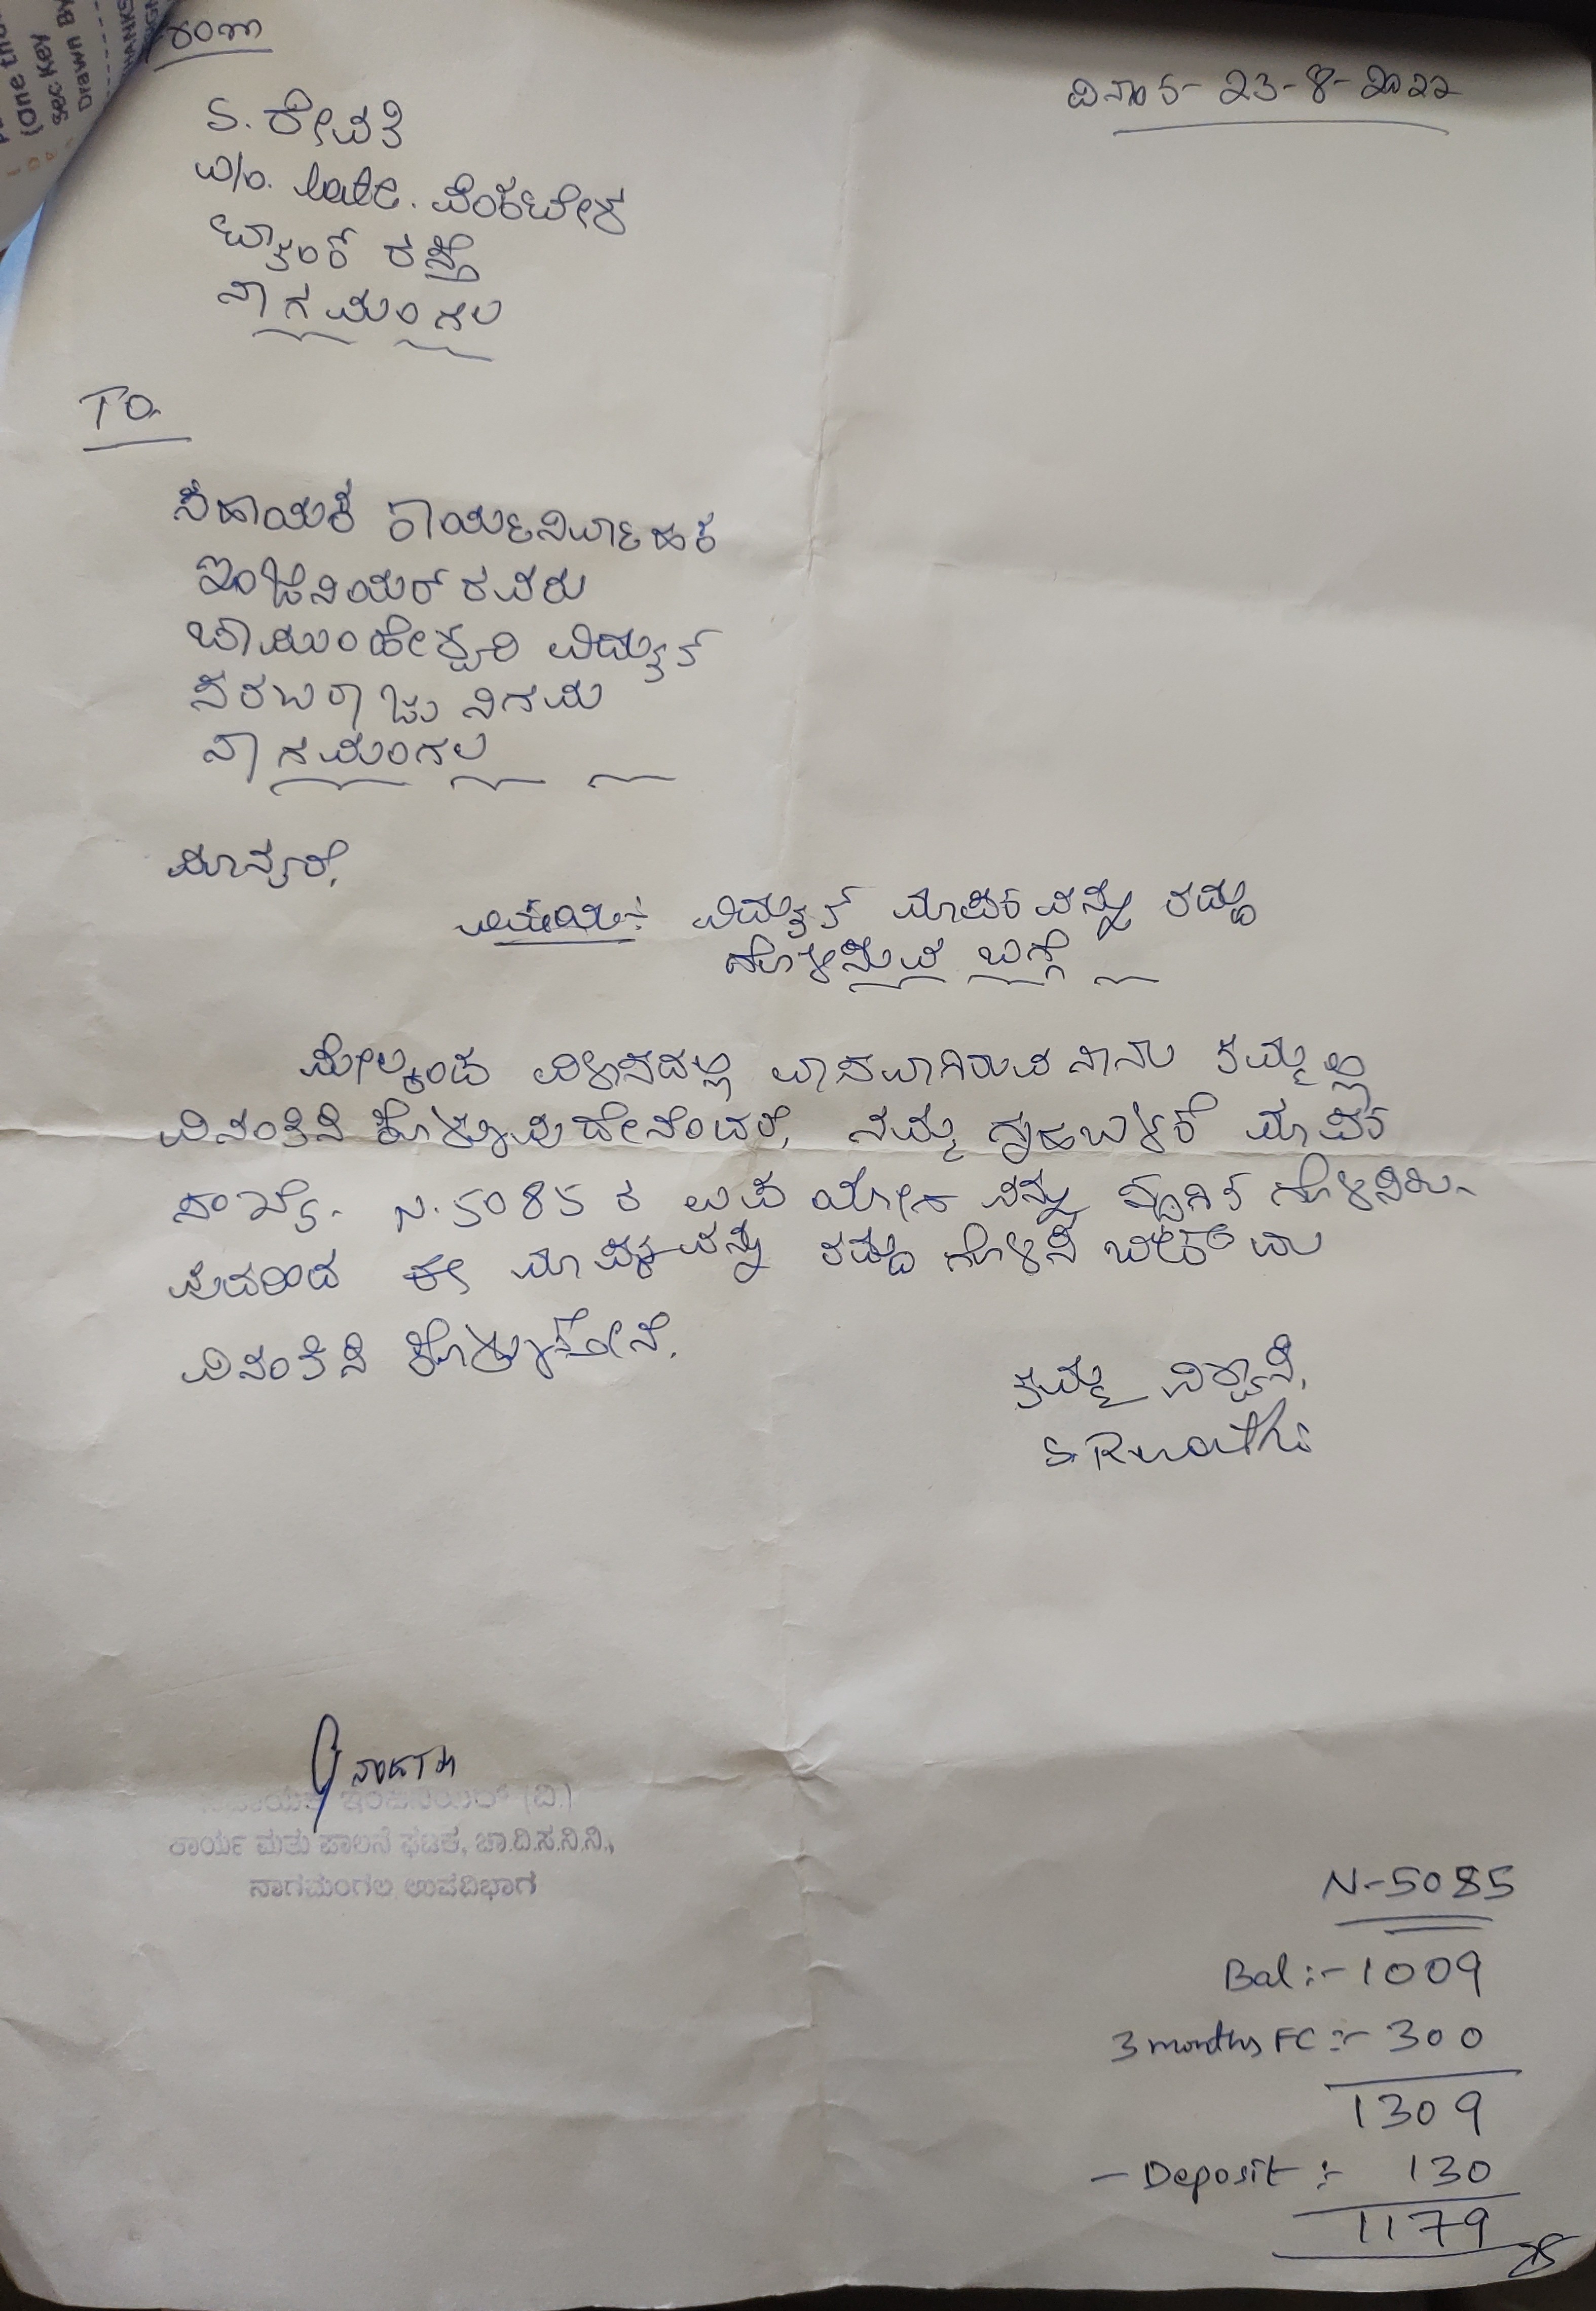 (One tho
Sec Key
Drawn By
rom
ದಿನಾಂಕ- 23-8-2022
S. ರೇವತಿ
w/o. late. ವೆಂಕಟೇಶ
ಟ್ಯಾಂಕ್ ರಸ್ತೆ
ನಾಗಮಂಗಲ
To.
ಸಹಾಯಕ ಕಾರ್ಯನಿರ್ವಾಹಕ
ಇಂಜಿನಿಯರ್ ರವರು
ಚಾಮುಂಡೇಶ್ವರಿ ವಿದ್ಯುತ್
ಸರಬರಾಜು ನಿಗಮ
ನಾಗಮಂಗಲ
ಮಾನ್ಯರೆ,
ವಿಷಯ:- ವಿದ್ಯುತ್ ಮಾಪಕವನ್ನು ರದ್ದು
ಗೊಳಿಸುವ ಬಗ್ಗೆ
ಮೇಲ್ಕಂಡ ವಿಳಾಸದಲ್ಲಿ ವಾಸವಾಗಿರುವ ನಾನು ತಮ್ಮಲ್ಲಿ
ವಿನಂತಿಸಿ ಕೊಳ್ಳುವುದೇನೆಂದರೆ, ನಮ್ಮ ಗೃಹಬಳಕೆ ಮಾಪಕ
ಸಂಖ್ಯೆ- N.5085 ರ ಉಪಯೋಗವನ್ನು ಸ್ಥಗಿತ ಗೊಳಿಸಿರು-
ವುದರಿಂದ ಈ ಮಾಪಕವನ್ನು ರದ್ದು ಗೊಳಿಸಿ ಬೇಕೆಂದು
ವಿನಂತಿಸಿ ಕೊಳ್ಳುತ್ತೇನೆ.
ತಮ್ಮ ವಿಶ್ವಾಸಿ,
S. Rvathi
ಸಹಾಯಕ ಇಂಜಿನಿಯರ್ (ವಿ.)
ಕಾರ್ಯ ಮತ್ತು ಪಾಲನೆ ಘಟಕ, ಚಾ.ವಿ.ಸ.ನಿ.ನಿ.,
ನಾಗಮಂಗಲ ಉಪವಿಭಾಗ
N-5085
Bal:- 1009
3 months FC:- 300
1309
- Deposit:- 130
1179